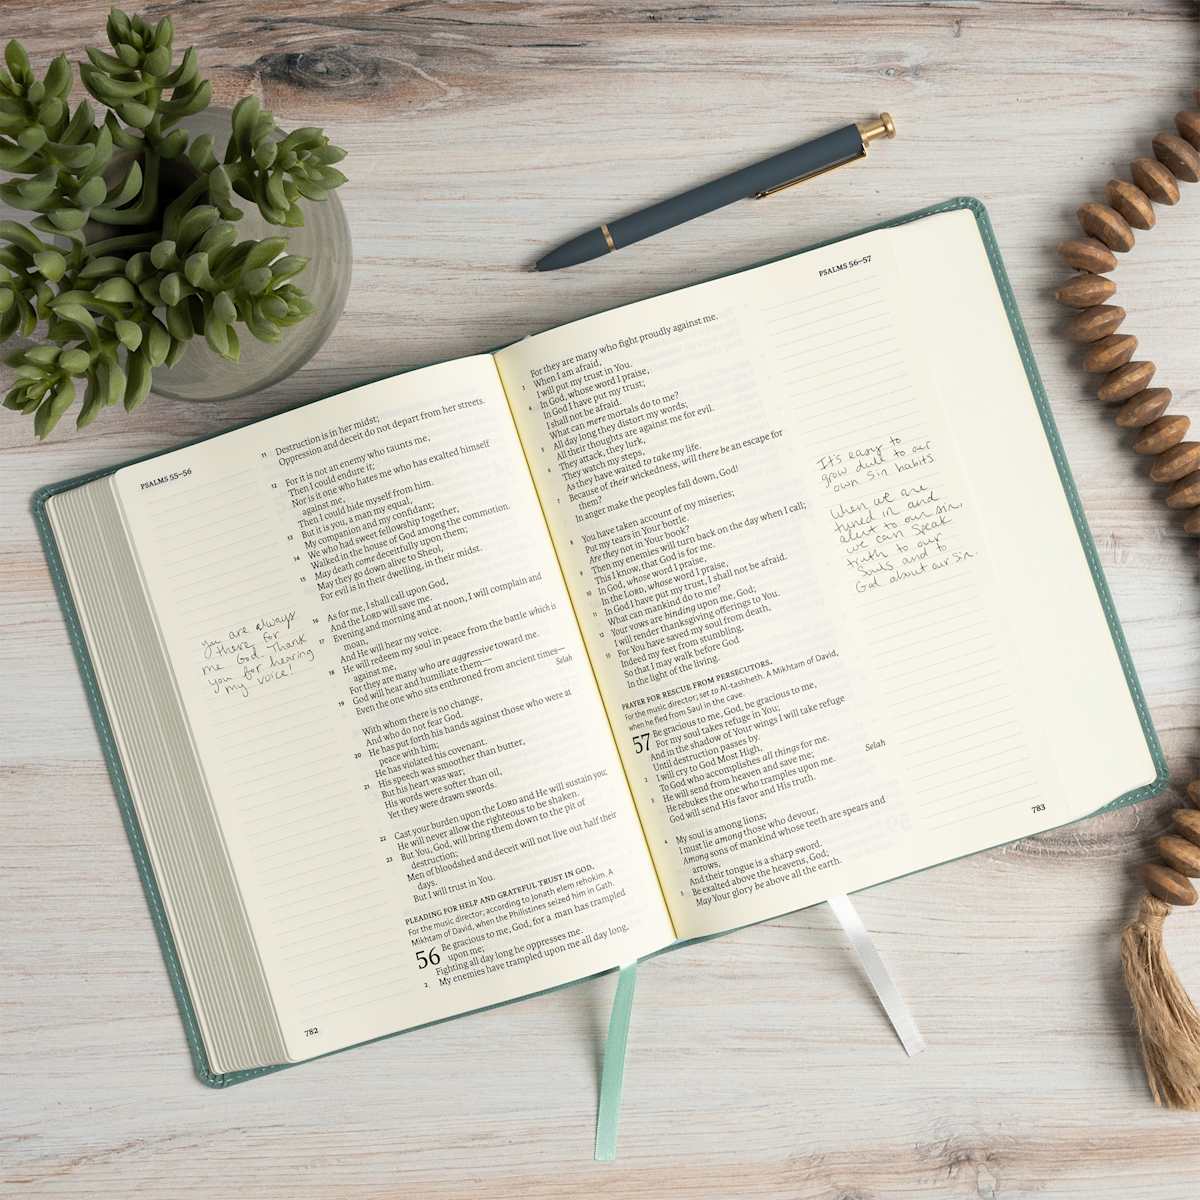 PSALMS 55–56
11 Destruction is in her midst;
Oppression and deceit do not depart from her streets.
12 For it is not an enemy who taunts me,
Then I could endure it;
Nor is it one who hates me who has exalted himself
against me,
Then I could hide myself from him.
13 But it is you, a man my equal,
My companion and my confidant;
14 We who had sweet fellowship together,
Walked in the house of God among the commotion.
15 May death come deceitfully upon them;
May they go down alive to Sheol,
For evil is in their dwelling, in their midst.
16 As for me, I shall call upon God,
And the LORD will save me.
17 Evening and morning and at noon, I will complain and
moan,
And He will hear my voice.
18 He will redeem my soul in peace from the battle which is
against me,
For they are many who are aggressive toward me.
19 God will hear and humiliate them—
Even the one who sits enthroned from ancient times—
Selah
With whom there is no change,
And who do not fear God.
20 He has put forth his hands against those who were at
peace with him;
He has violated his covenant.
21 His speech was smoother than butter,
But his heart was war;
His words were softer than oil,
Yet they were drawn swords.
22 Cast your burden upon the LORD and He will sustain you;
He will never allow the righteous to be shaken.
23 But You, God, will bring them down to the pit of
destruction;
Men of bloodshed and deceit will not live out half their
days.
But I will trust in You.
PLEADING FOR HELP AND GRATEFUL TRUST IN GOD.
For the music director; according to Jonath elem rehokim. A
Mikhtam of David, when the Philistines seized him in Gath.
56 Be gracious to me, God, for a man has trampled
upon me;
Fighting all day long he oppresses me.
2 My enemies have trampled upon me all day long,
you are always
there for
me God. Thank
you for hearing
my voice!
782
PSALMS 56–57
For they are many who fight proudly against me.
3 When I am afraid,
I will put my trust in You.
4 In God, whose word I praise,
In God I have put my trust;
I shall not be afraid.
What can mere mortals do to me?
5 All day long they distort my words;
All their thoughts are against me for evil.
6 They attack, they lurk,
They watch my steps,
As they have waited to take my life.
7 Because of their wickedness, will there be an escape for
them?
In anger make the peoples fall down, God!
8 You have taken account of my miseries;
Put my tears in Your bottle.
Are they not in Your book?
9 Then my enemies will turn back on the day when I call;
This I know, that God is for me.
10 In God, whose word I praise,
In the LORD, whose word I praise,
11 In God I have put my trust, I shall not be afraid.
What can mankind do to me?
12 Your vows are binding upon me, God;
I will render thanksgiving offerings to You.
13 For You have saved my soul from death,
Indeed my feet from stumbling,
So that I may walk before God
In the light of the living.
PRAYER FOR RESCUE FROM PERSECUTORS.
For the music director; set to Al-tashheth. A Mikhtam of David,
when he fled from Saul in the cave.
57 Be gracious to me, God, be gracious to me,
For my soul takes refuge in You;
And in the shadow of Your wings I will take refuge
Until destruction passes by.
2 I will cry to God Most High,
To God who accomplishes all things for me.
3 He will send from heaven and save me;
He rebukes the one who tramples upon me. Selah
God will send His favor and His truth.
4 My soul is among lions;
I must lie among those who devour,
Among sons of mankind whose teeth are spears and
arrows,
And their tongue is a sharp sword.
5 Be exalted above the heavens, God;
May Your glory be above all the earth.
It's easy to
grow dull to our
own sin habits
when we are
tuned in and
alert to our sin,
we can speak
truth to our
souls and to
God about our sin.
783